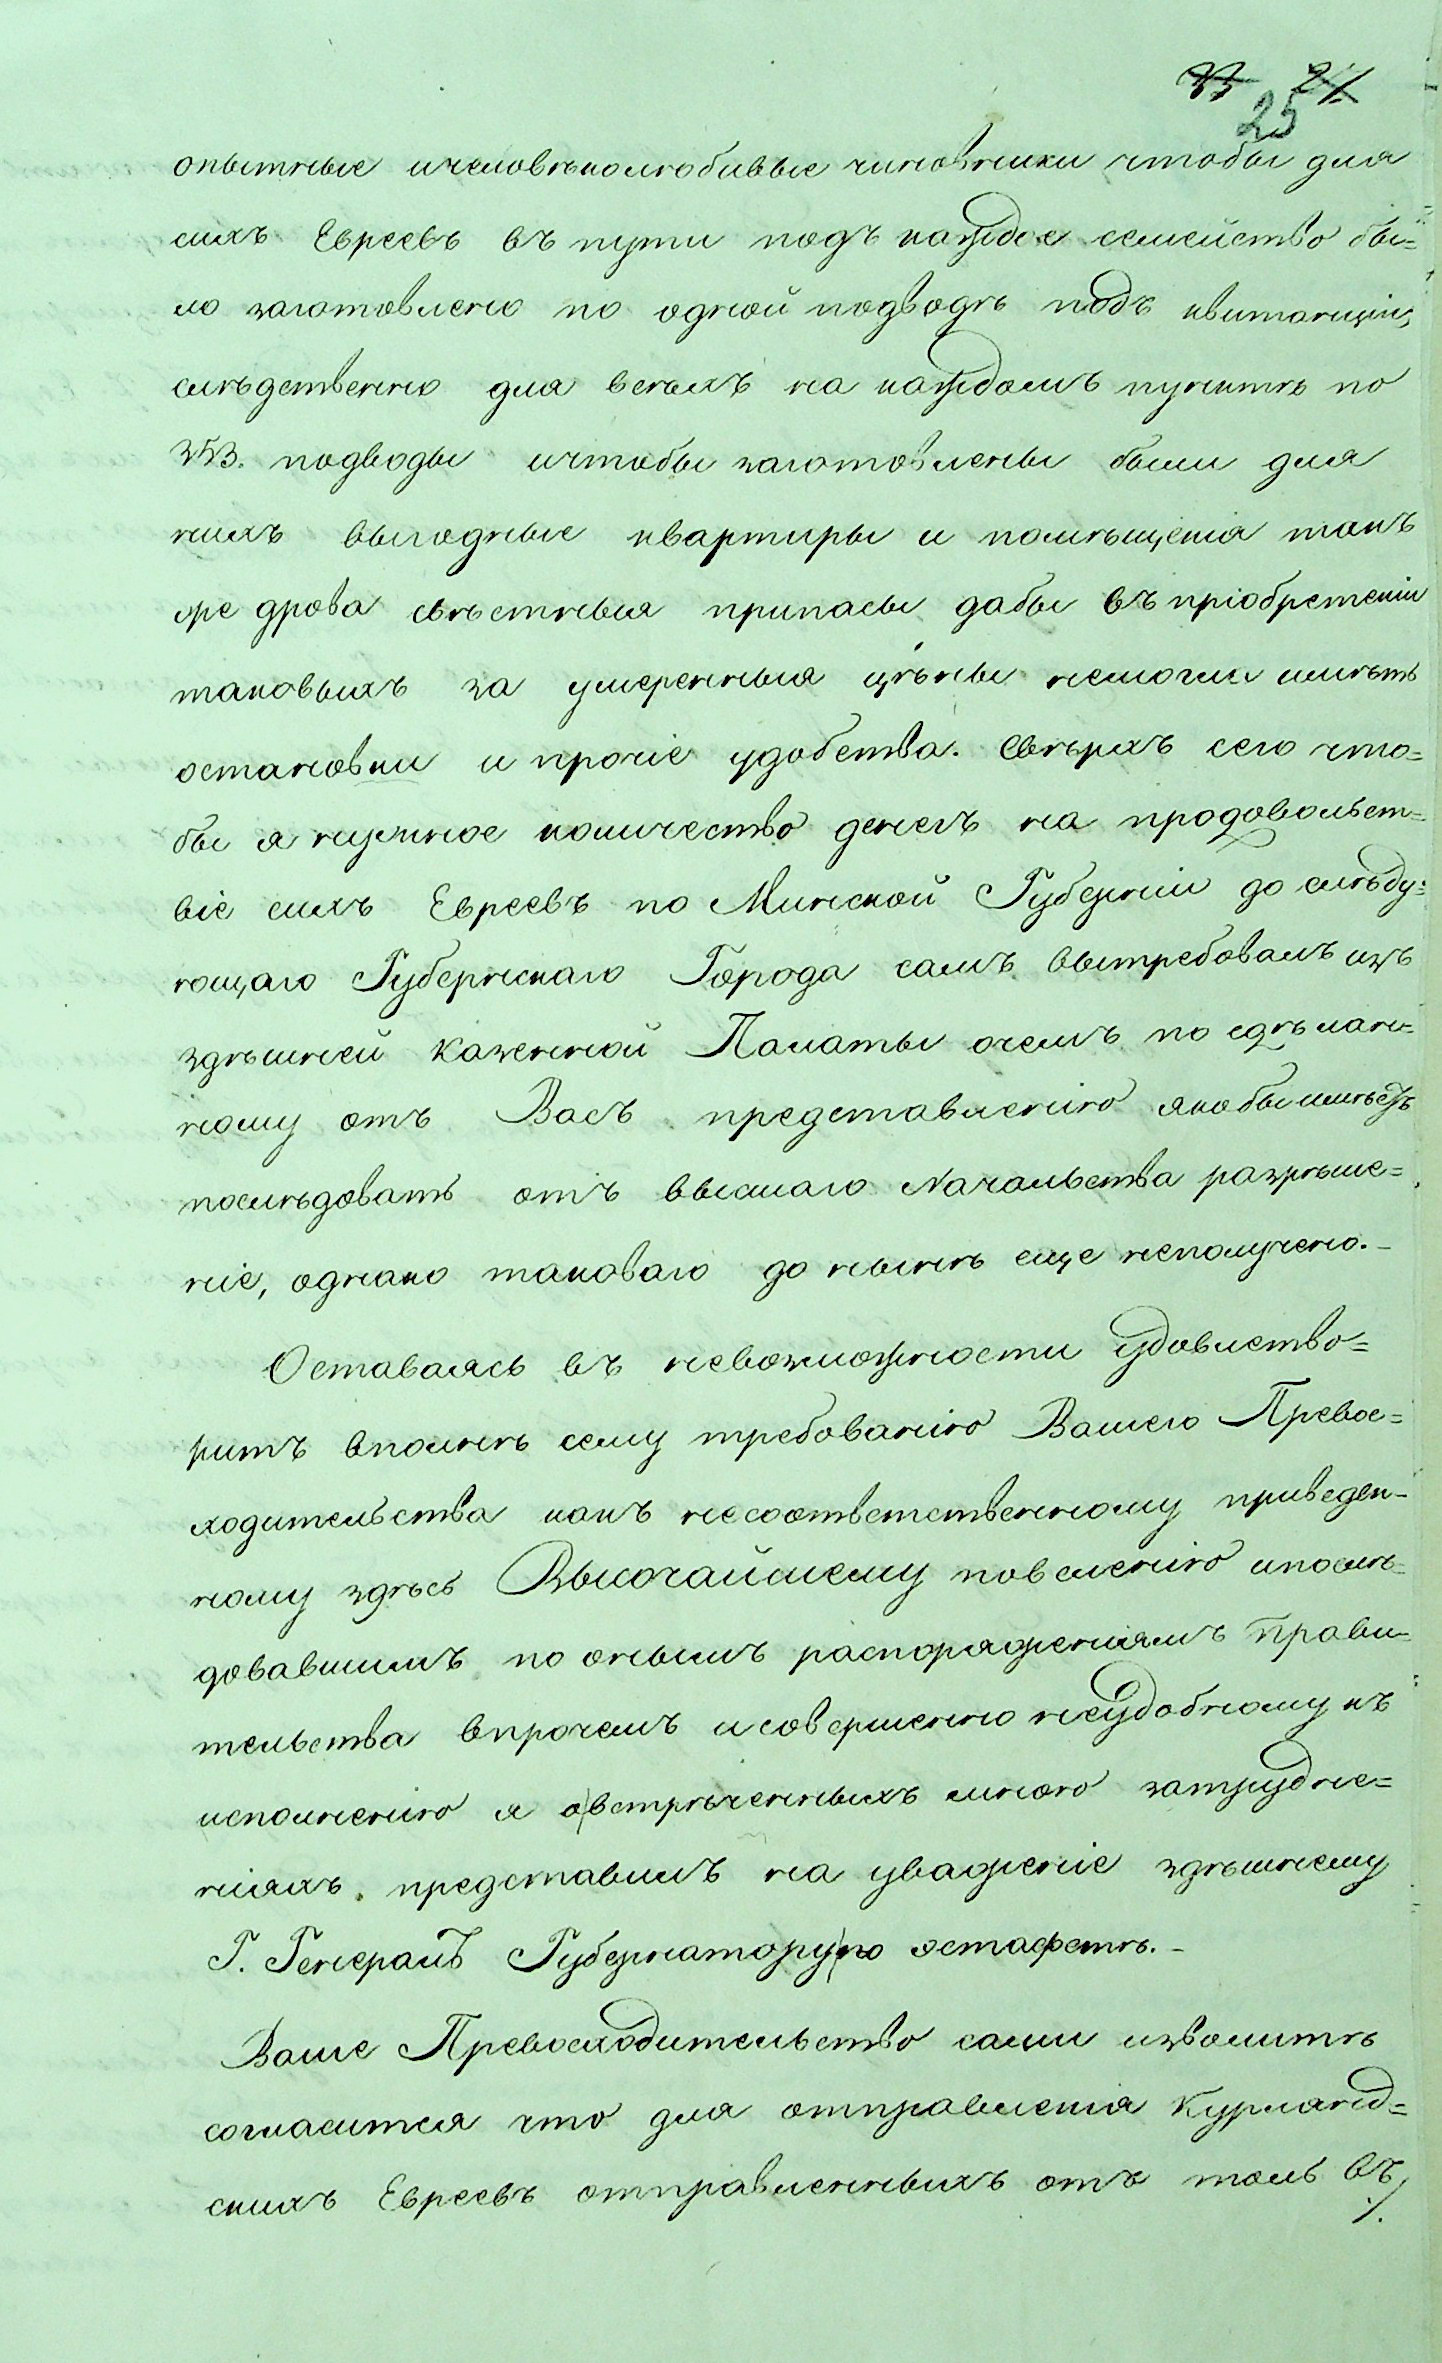 25
опытные ичеловѣколюбивые чиновники чтобы для
сихъ Евреевъ въ пути подъ каждое семейство бы=
ло заготовлено по одной подводѣ подъ квитанціи,
слѣдственно для всѣхъ на каждомъ пунктѣ по
подводы ичтобы заготовлены были для
нихъ выгодные квартиры и помѣщенія такъ
же дрова съѣстныя припасы дабы въ пріобретеніи
таковыхъ за умеренныя цѣны немогли имѣть
остановки и прочіе удобства. Свѣрхъ сего что=
бы я нужное количество денегъ на продовольст=
віе сихъ Евреевъ по Минской Губерніи до слѣду=
ющаго Губернскаго Города самъ вытребовалъ изъ
здѣшней Казенной Палаты очемъ по сдѣлан=
ному отъ Васъ представленію якобы имѣетъ
послѣдовать отъ высшаго Начальства разрѣше=
ніе, однако таковаго до нынѣ еще неполучено.-
Оставаясь въ невозможности удовлетво=
ритъ вполнѣ сему требованію Вашего Превос=
ходительства какъ несоотвѣтственному приведен-
ному здѣсь Высочайшему повеленію ипослѣ-
довавшимъ по онымъ распоряженіямъ Прави-
тельства впрочемъ и совершенно неудобному къ
исполненію я овстрѣченныхъ мною затрудне=
ніяхъ представилъ на уваженіе здѣшнему
Г. Генералъ Губернатору по эстафетѣ.-
Ваше Превосходительство сами изволитѣ
согласится что для отправленія Курлянд=
скихъ Евреевъ отправленныхъ отъ толь въ